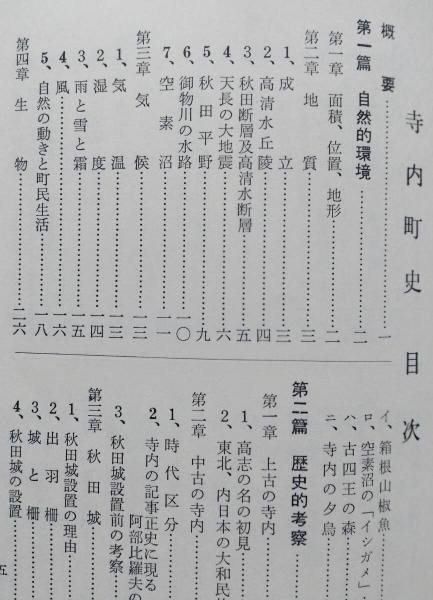 寺内町史目次
概要……………一
第一篇 自然的環境……………二
第一章 面積、位置、地形……………二
第二章 地質……………三
1、成立……………三
2、高清水丘陵……………四
3、秋田断層及高清水断層……………五
4、天長の大地震……………六
5、秋田平野……………九
6、御物川の水路……………一〇
7、空素沼……………一一
第三章 気候……………一三
1、気温……………一三
2、湿度……………一四
3、雨と雪と霜……………一五
4、風……………一六
5、自然の動きと町民生活……………一八
第四章 生物……………二六
イ、箱根山椒魚……………
ロ、空素沼の「イシガメ」……
ハ、古四王の森……………
ニ、寺内の夕烏……………
第二篇 歴史的考察……………
第一章 上古の寺内……………
1、高志の名の初見……………
2、東北、内日本の大和民族
第二章 中古の寺内……………
1、時代区分……………
2、寺内の記事正史に現る
阿部比羅夫の
3、秋田城設置前の考察
第三章 秋田城……………
1、秋田城設置の理由……
2、出羽柵……………
3、城と柵……………
4、秋田城の設置……………
五